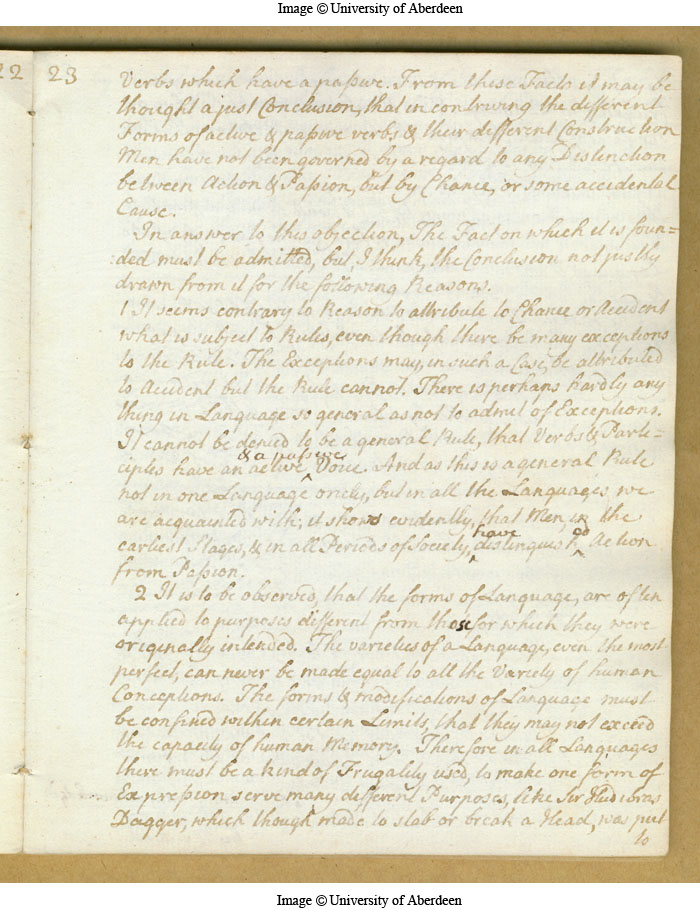 Image © University of Aberdeen
22 23
Verbs which have a passive. From these Facts it may be
thought a just Conclusion, that in contriving the different
Forms of active & passive verbs & their different Construction
Men have not been governed by a regard to any Distinction
between Action & Passion, but by Chance, or some accidental
Cause.
In answer to this objection, The Fact on which it is foun=
ded must be admitted, but, I think, the Conclusion not justly
drawn from it for the following Reasons.
1 It seems contrary to Reason to attribute to Chance or Accident
what is subject to Rules, even though there be many exceptions
to the Rule. The Exceptions may, in such a Case, be attributed
to Accident but the Rule cannot. There is perhaps hardly any
thing in Language so general as not to admit of Exceptions.
It cannot be denied to be a general Rule, that Verbs & Parti=
& a passive
ciples have an active ‸ Voice. And as this is a general Rule
not in one Language onely, but in all the Languages we
are acquainted with; it shows evidently, that Men, in the
have ed
earliest Stages, & in all Periods of Society, ‸ distinguish ‸ Action
from Passion.
2 It is to be observed, that the forms of Language, are often
applied to purposes different from those for which they were
originally intended. The varieties of a Language, even the most
perfect, can never be made equal to all the Variety of human
Conceptions. The forms & modifications of Language must
be confined within certain Limits, that they may not exceed
the capacity of human Memory. Therefore in all Languages
there must be a kind of Frugality used, to make one form of
Expression serve many different Purposes, like Sir Hudibras
Dagger, which though ‸ made to stab or break a Head, was put
to
Image © University of Aberdeen